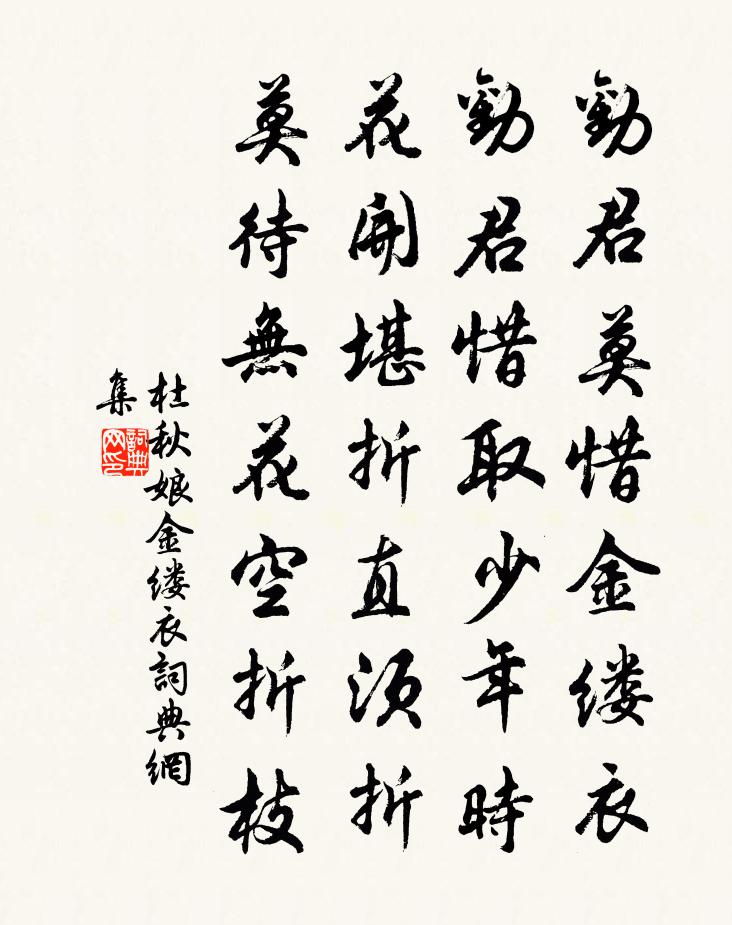 勸君莫惜金缕衣
勸君惜取少年時
花開堪折直須折
莫待無花空折枝
杜秋娘金缕衣詞典網
集
詞典
网印